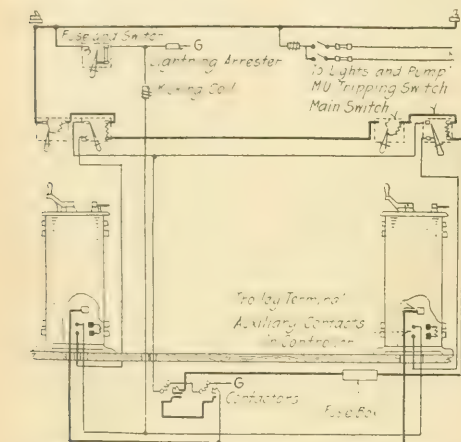 Fuse and Switch
G
Lightning Arrester
Kicking Coil
To Lights and Pump
MU Tripping Switch
Main Switch
Trolley Terminal
Auxiliary Contacts
in Controller
G
Contactors
Fuse Box